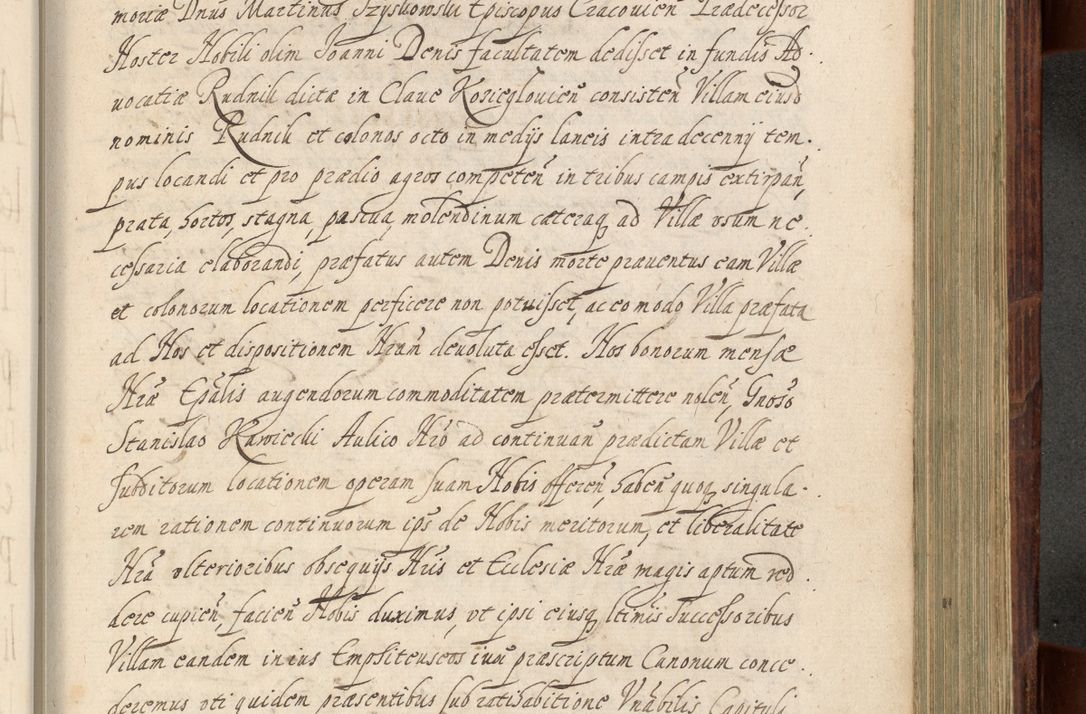 moriæ Dnus Martinus Szyskowski Episcopus Cracovien̄ Prædecessor
Noster Nobili olim Joanni Denis facultatem dedisset in fundis Ad-
vocatiæ Rudnik dictæ in Clave Kozieglovien̄ consisten̄ Villam eiusd
nominis Rudnik et colonos octo in medijs laneis intra decennij tem-
pus locandi et pro prædio agros competen̄ in tribus campis extirpan̄,
prata, hortos, stagna, pascua, molendinum cæteraq ad Villæ usum ne-
cessaria elaborandi, præfatus autem Denis morte præventus eam Villæ
et colonorum locationem perficere non potuisset, ac eo modo Villa præfata
ad Nos et dispositionem Nram devoluta esset. Nos bonorum mensæ
Nræ Epalis augendorum commoditatem prætermittere nolen̄, Gnoso
Stanislao Kawiecki Aulico Nro ad continuan̄ prædictam Villæ et
subditorum locationem operam suam Nobis offeren̄, haben̄ quoq singula-
rem rationem continuorum ips de Nobis meritorum, et liberalitate
Nra ulterioribus obsequijs Nris et Ecclesiæ Nræ magis aptum red-
dere cupien̄, facien̄ Nobis duximus, ut ipsi eiusq ltimis Successoribus
Villam eandem in ius Emphiteuseos iux præscriptum Canonum conce-
deremus uti quidem præsentibus sub ratihabitione Vnabilis Capituli